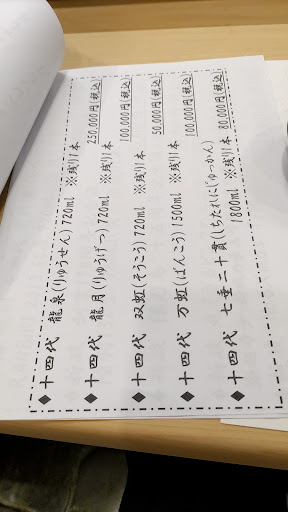 ◆十四代 龍泉(りゅうせん)720ml ※残り1本
250.000円(税込)
◆十四代 龍月(りゅうげつ)720ml ※残り1本
100.000円(税込)
◆十四代 双虹(そうこう)720ml ※残り1本
50.000円(税込)
◆十四代 万虹(ばんこう)1500ml ※残り1本
100.000円(税込)
◆十四代 七垂二十貫(しちたれにじゅっかん)
1800ml ※残り1本 80.000円(税込)